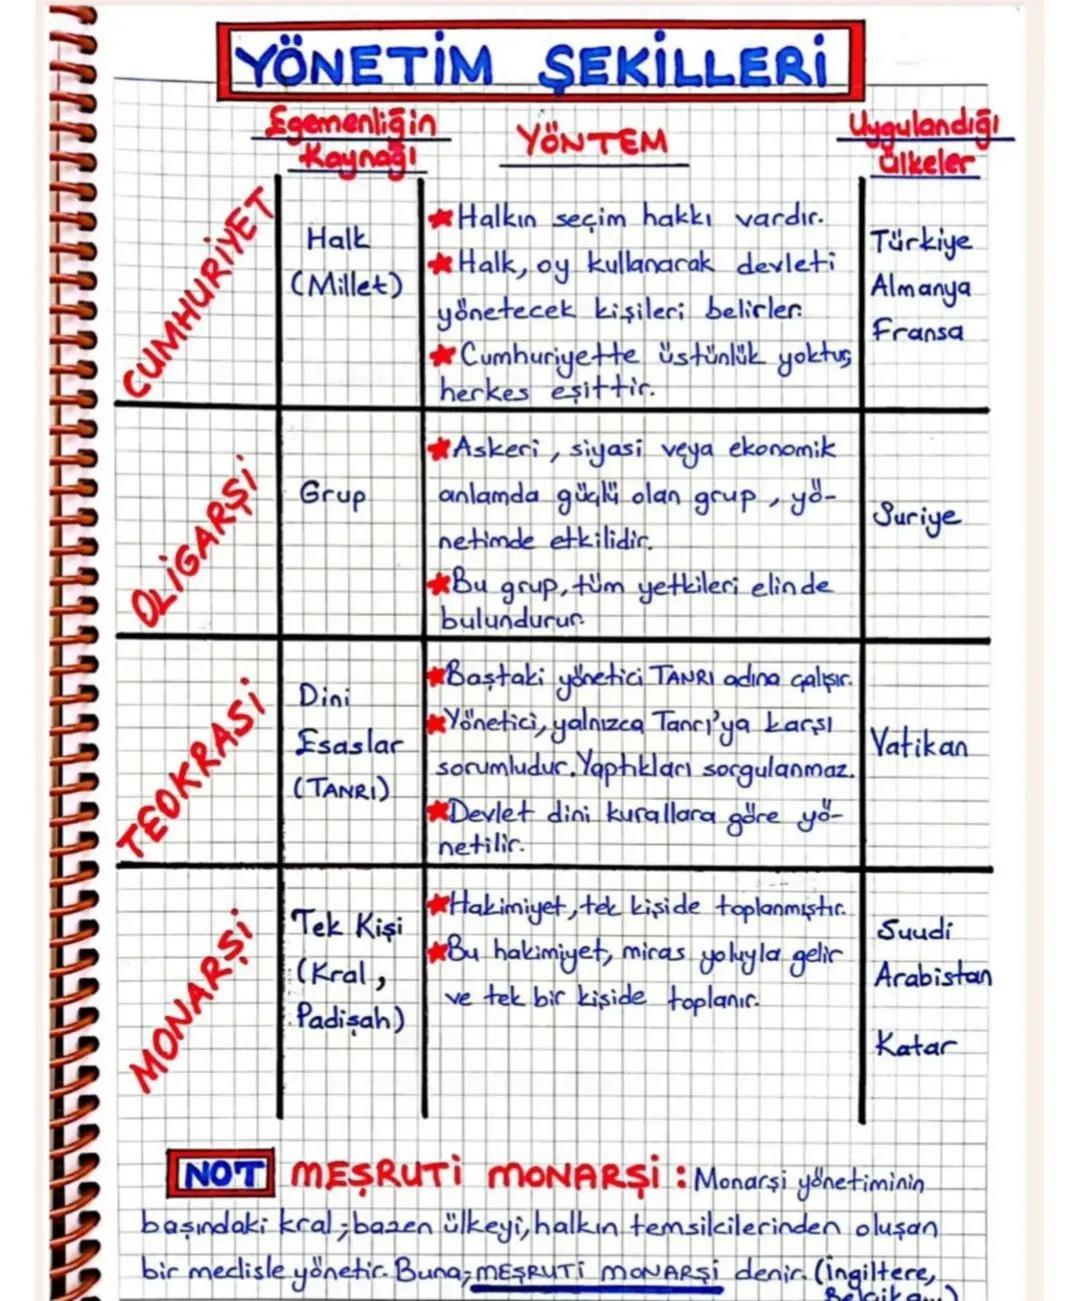 YÖNETİM ŞEKİLLERİ
Egemenliğin
Kaynağı
YÖNTEM
Uygulandığı
Ülkeler
CUMHURİYET
Halk
(Millet)
★Halkın seçim hakkı vardır.
★Halk, oy kullanarak devleti
yönetecek kişileri belirler.
★Cumhuriyette üstünlük yoktur,
herkes eşittir.
Türkiye
Almanya
Fransa
OLİGARŞİ
Grup
★Askeri, siyasi veya ekonomik
anlamda güçlü olan grup, yö-
netimde etkilidir.
★Bu grup, tüm yetkileri elinde
bulundurur.
Suriye
TEOKRASİ
Dini
Esaslar
(TANRI)
★Baştaki yönetici TANRI adına çalışır.
★Yönetici, yalnızca Tanrı'ya karşı
sorumludur. Yaptıkları sorgulanmaz.
★Devlet dini kurallara göre yö-
netilir.
Vatikan
MONARŞİ
Tek Kişi
(Kral,
Padişah)
★Hakimiyet, tek kişide toplanmıştır.
★Bu hakimiyet, miras yoluyla gelir
ve tek bir kişide toplanır.
Suudi
Arabistan
Katar
NOT MEŞRUTİ MONARŞİ: Monarşi yönetiminin
başındaki kral; bazen ülkeyi, halkın temsilcilerinden oluşan
bir meclisle yönetir. Buna; MEŞRUTİ MONARŞİ denir. (İngiltere,
Belçika...)